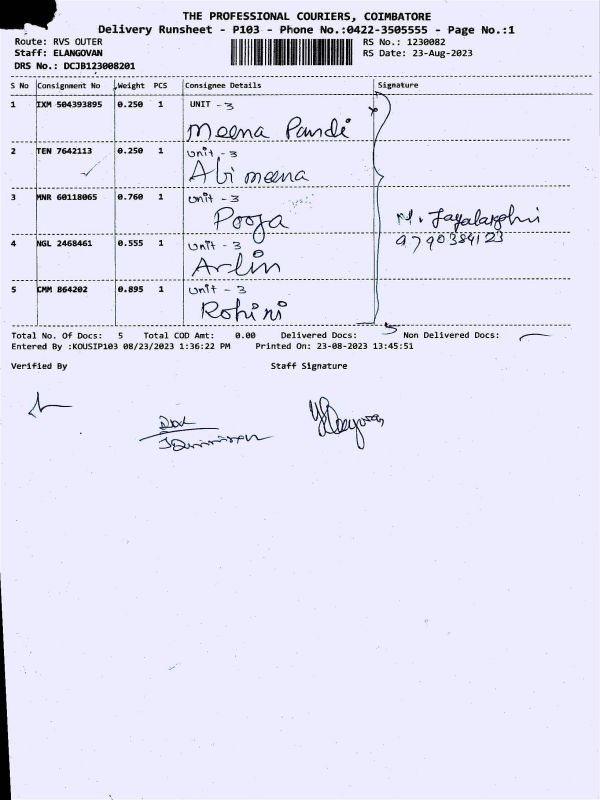 THE PROFESSIONAL COURIERS, COIMBATORE
Delivery Runsheet - P103 - Phone No.:0422-3505555 - Page No.:1
Route: RVS OUTER RS No.: 1230082
Staff: ELANGOVAN RS Date: 23-Aug-2023
DRS No.: DCJB123008201
S No Consignment No Weight PCS Consignee Details Signature
1 IXM 504393895 0.250 1 UNIT - 3
Meena Pandi
2 TEN 7642113 0.250 1 Unit - 3
Abi meena
3 MNR 60118065 0.760 1 Unit - 3
Pooja M.
9790384123
4 NGL 2468461 0.555 1 Unit - 3
Arlin
5 CMM 864202 0.895 1 Unit - 3
Rohini
Total No. Of Docs: 5 Total COD Amt: 0.00 Delivered Docs: 5 Non Delivered Docs:
Entered By :KOUSIP103 08/23/2023 1:36:22 PM Printed On: 23-08-2023 13:45:51
Verified By Staff Signature